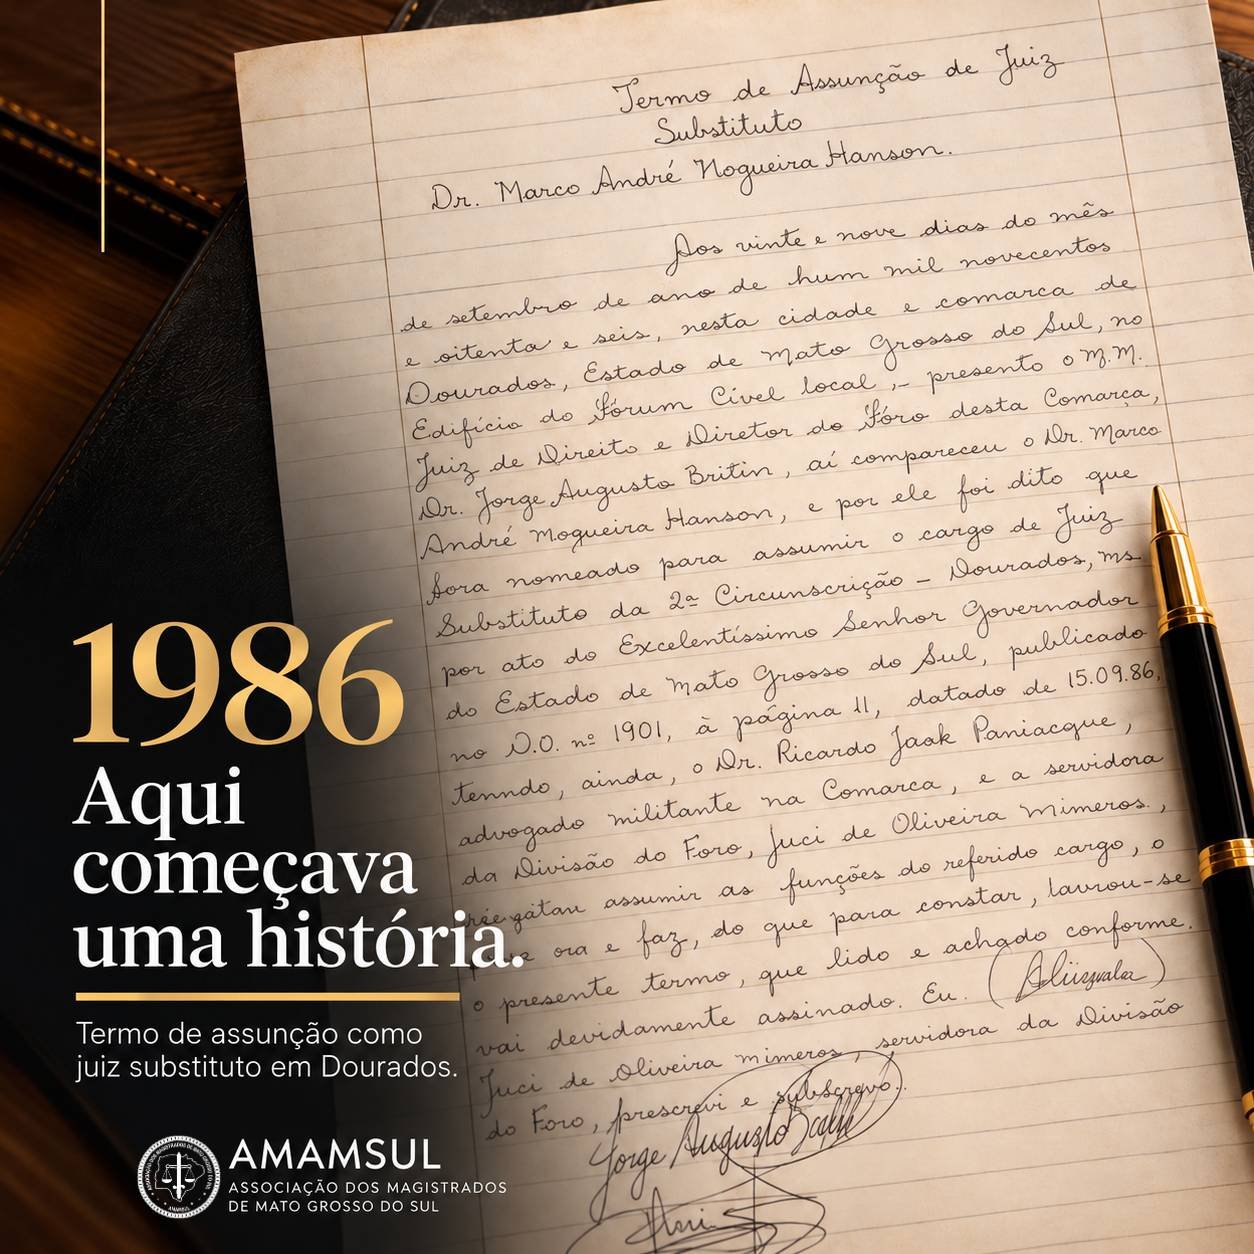 Termo de Assunção de Juiz
Substituto
Dr. Marco André Nogueira Hanson.
Aos vinte e nove dias do mês
de setembro de ano de hum mil novecentos
e oitenta e seis, nesta cidade e comarca de
Dourados, Estado de Mato Grosso do Sul, no
Edifício do Fórum Cível local, - presento o M.M.
Juiz de Direito e Diretor do Fôro desta Comarça,
Dr. Jorge Augusto Britin, aí compareceu o Dr. Marco
André Nogueira Hanson, e por ele foi dito que
fora nomeado para assumir o cargo de Juiz
Substituto da 2ª Circunscrição - Dourados, ms.
por ato do Excelentíssimo Senhor Governador
do Estado de Mato Grosso do Sul, publicado
no D.O. nº 1901, à página 11, datado de 15.09.86,
tenndo, ainda, o Dr. Ricardo Jaak Paniacque,
advogado militante na Comarca, e a servidora
da Divisão do Foro, Juci de Oliveira Mimeros.,
assumir as funções do referido cargo, o
ora e faz, do que para constar, lavrou-se
o presente termo, que lido e achado conforme.
vai devidamente assinado. Eu. ( )
Juci de Oliveira mimeros, servidora da Divisão
do Foro, prescrevi e subscrevo.
Jorge Augusto
1986
Aqui
começava
uma história.
Termo de assunção como
juiz substituto em Dourados.
AMAMSUL
ASSOCIAÇÃO DOS MAGISTRADOS
DE MATO GROSSO DO SUL